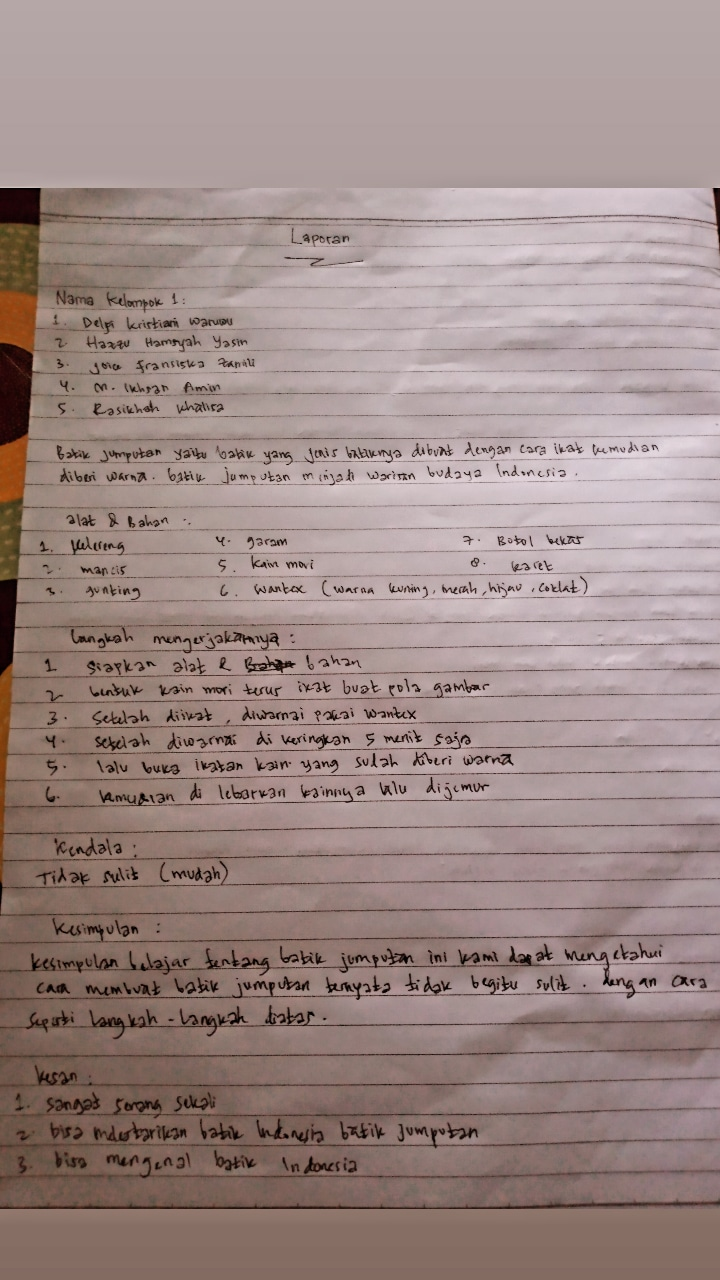 Laporan
Nama Kelompok 1:
1. Delpi Kristiani Waruwu
2. Hazzu Hamsyah Yasin
3. Fransiska
4. M. Ikhsan Amin
5. Rasikhah Khalisa
Batik jumputan yaitu batik yang jenis batiknya dibuat dengan cara ikat kemudian
diberi warna. batik jumputan menjadi warisan budaya Indonesia.
alat & Bahan :
1. kelereng 4. garam 7. Botol bekas
2. mancis 5. kain mori 8. karet
3. gunting 6. wantex (warna kuning, merah, hijau, coklat)
Langkah mengerjakannya :
1 siapkan alat & bahan
2 bentuk kain mori terus ikat buat pola gambar
3. Setelah diikat, diwarnai pakai wantex
4. setelah diwarnai di keringkan 5 menit saja
5. lalu buka ikatan kain yang sudah diberi warna
6. kemudian di lebarkan kainnya lalu dijemur
Kendala :
Tidak sulit (mudah)
Kesimpulan :
Kesimpulan belajar tentang batik jumputan ini kami dapat mengetahui
cara membuat batik jumputan ternyata tidak begitu sulit. dengan cara
seperti langkah-langkah diatas.
kesan :
1. sangat senang sekali
2. bisa melestarikan batik Indonesia batik jumputan
3. bisa mengenal batik Indonesia